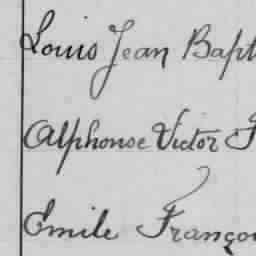 Louis Jean Bapt
Alphonse Victor F
Emile Françoi